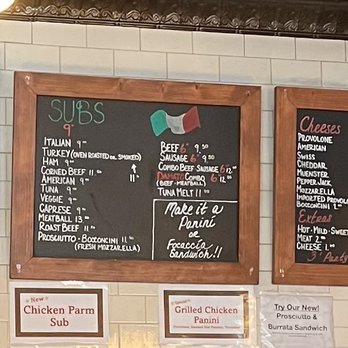 SUBS
9"
ITALIAN 9.00
TURKEY (OVEN ROASTED OR SMOKED)
HAM 9.00
CORNED BEEF 11.00
AMERICAN 9.00
TUNA 9.00
VEGGIE 9.00
CAPRESE 9.00
MEATBALL 13.00
ROAST BEEF 11.00
PROSCIUTTO - BOCCONCINI 11.00
(FRESH MOZZARELLA)
BEEF 6" 9.50
SAUSAGE 6" 9.50
COMBO BEEF SAUSAGE 6" 12.00
DAMATO COMBO 6" 12.00
(BEEF-MEATBALL)
TUNA MELT!!
Make it a
Panini
or
Focaccia
Sandwich!!
Cheeses
PROVOLONE
AMERICAN
SWISS
CHEDDAR
MUENSTER
PEPPER JACK
MOZZARELLA
IMPORTED PROVOLO
BOCCONCINI
Extras
HOT-MILD-SWEET
MEAT 2.00
CHEESE 1.00
New
Chicken Parm
Sub
Grilled Chicken
Panini
Try Our New!
Prosciutto &
Burrata Sandwich